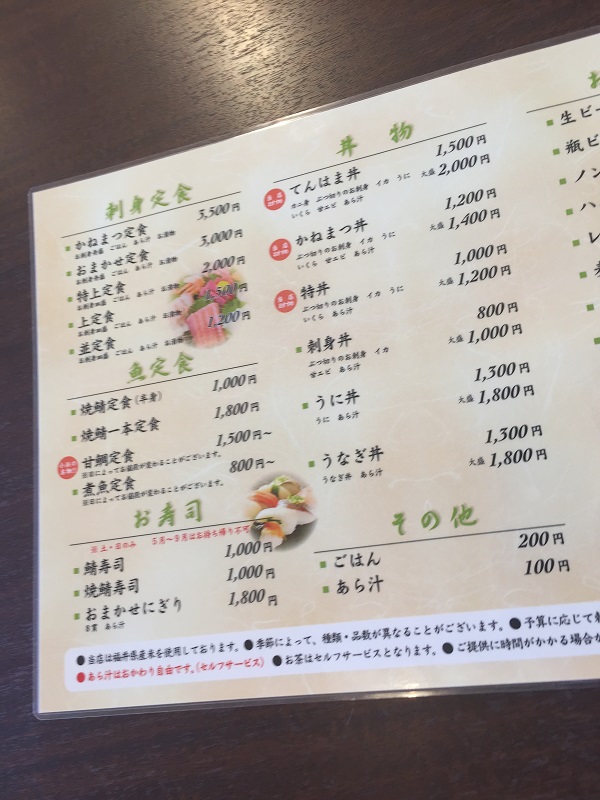 刺身定食
かねまつ定食 3,500円
お刺身舟盛 ごはん あら汁 お漬物
おまかせ定食 3,000円
お刺身舟盛 ごはん あら汁 お漬物
特上定食 2,000円
お刺身皿盛 ごはん あら汁 お漬物
上定食 1,500円
お刺身皿盛 ごはん あら汁 お漬物
並定食 1,200円
お刺身皿盛 ごはん あら汁 お漬物
魚定食
焼鯖定食(半身) 1,000円
焼鯖一本定食 1,800円
甘鯛定食 1,500円~
※日によってお値段が変わることがございます。
煮魚定食 800円~
※日によってお値段が変わることがございます。
お寿司
※土・日のみ 5月~9月はお持ち帰り不可
鯖寿司 1,000円
焼鯖寿司 1,000円
おまかせにぎり 1,800円
8貫 あら汁
丼物
てんはま丼 1,500円
カニ身 ぶつ切りのお刺身 イカ うに 大盛 2,000円
いくら 甘エビ あら汁
かねまつ丼 1,200円
ぶつ切りのお刺身 イカ うに 大盛 1,400円
いくら 甘エビ あら汁
特丼 1,000円
ぶつ切りのお刺身 イカ うに 大盛 1,200円
いくら あら汁
刺身丼 800円
ぶつ切りのお刺身 イカ 大盛 1,000円
甘エビ あら汁
うに丼 1,300円
うに あら汁 大盛 1,800円
うなぎ丼 1,300円
うなぎ丼 あら汁 大盛 1,800円
その他
ごはん 200円
あら汁 100円
お
生ビー
瓶ビ
ノン
ハ
レ
●当店は福井県産米を使用しております。●季節によって、種類・品数が異なることがございます。●予算に応じて
●あら汁はおかわり自由です。(セルフサービス) ●お茶はセルフサービスとなります。●ご提供に時間がかかる場合が